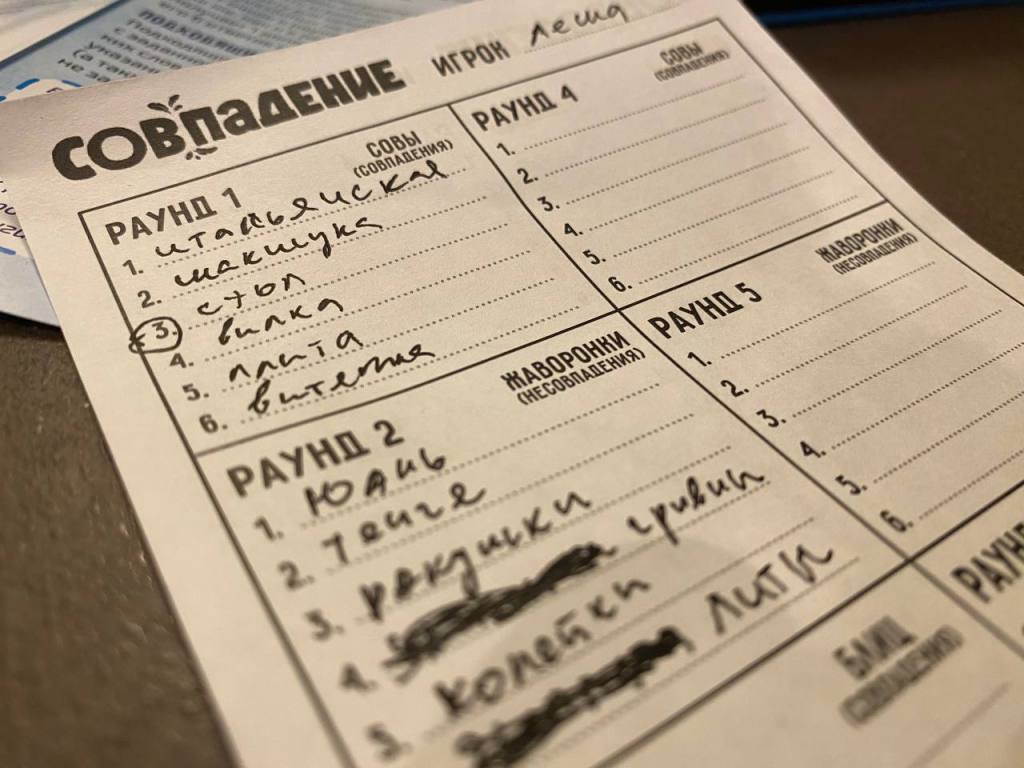 СОВПАДЕНИЕ
ИГРОК Леша
РАУНД 1 СОВЫ
(СОВПАДЕНИЯ)
1. итальянская
2. шакшука
3. стол
4. вилка
5. плита
6. вытяжка
РАУНД 2 ЖАВОРОНКИ
(НЕСОВПАДЕНИЯ)
1. Юань
2. тенге
3. ракушки
4. гривни
5. копейки
литы
РАУНД 4 СОВЫ
(СОВПАДЕНИЯ)
1.
2.
3.
4.
5.
6.
РАУНД 5 ЖАВОРОНКИ
(НЕСОВПАДЕНИЯ)
1.
2.
3.
4.
5.
6.
БЛИЦ
(СОВПАДЕНИЯ)
РАУН